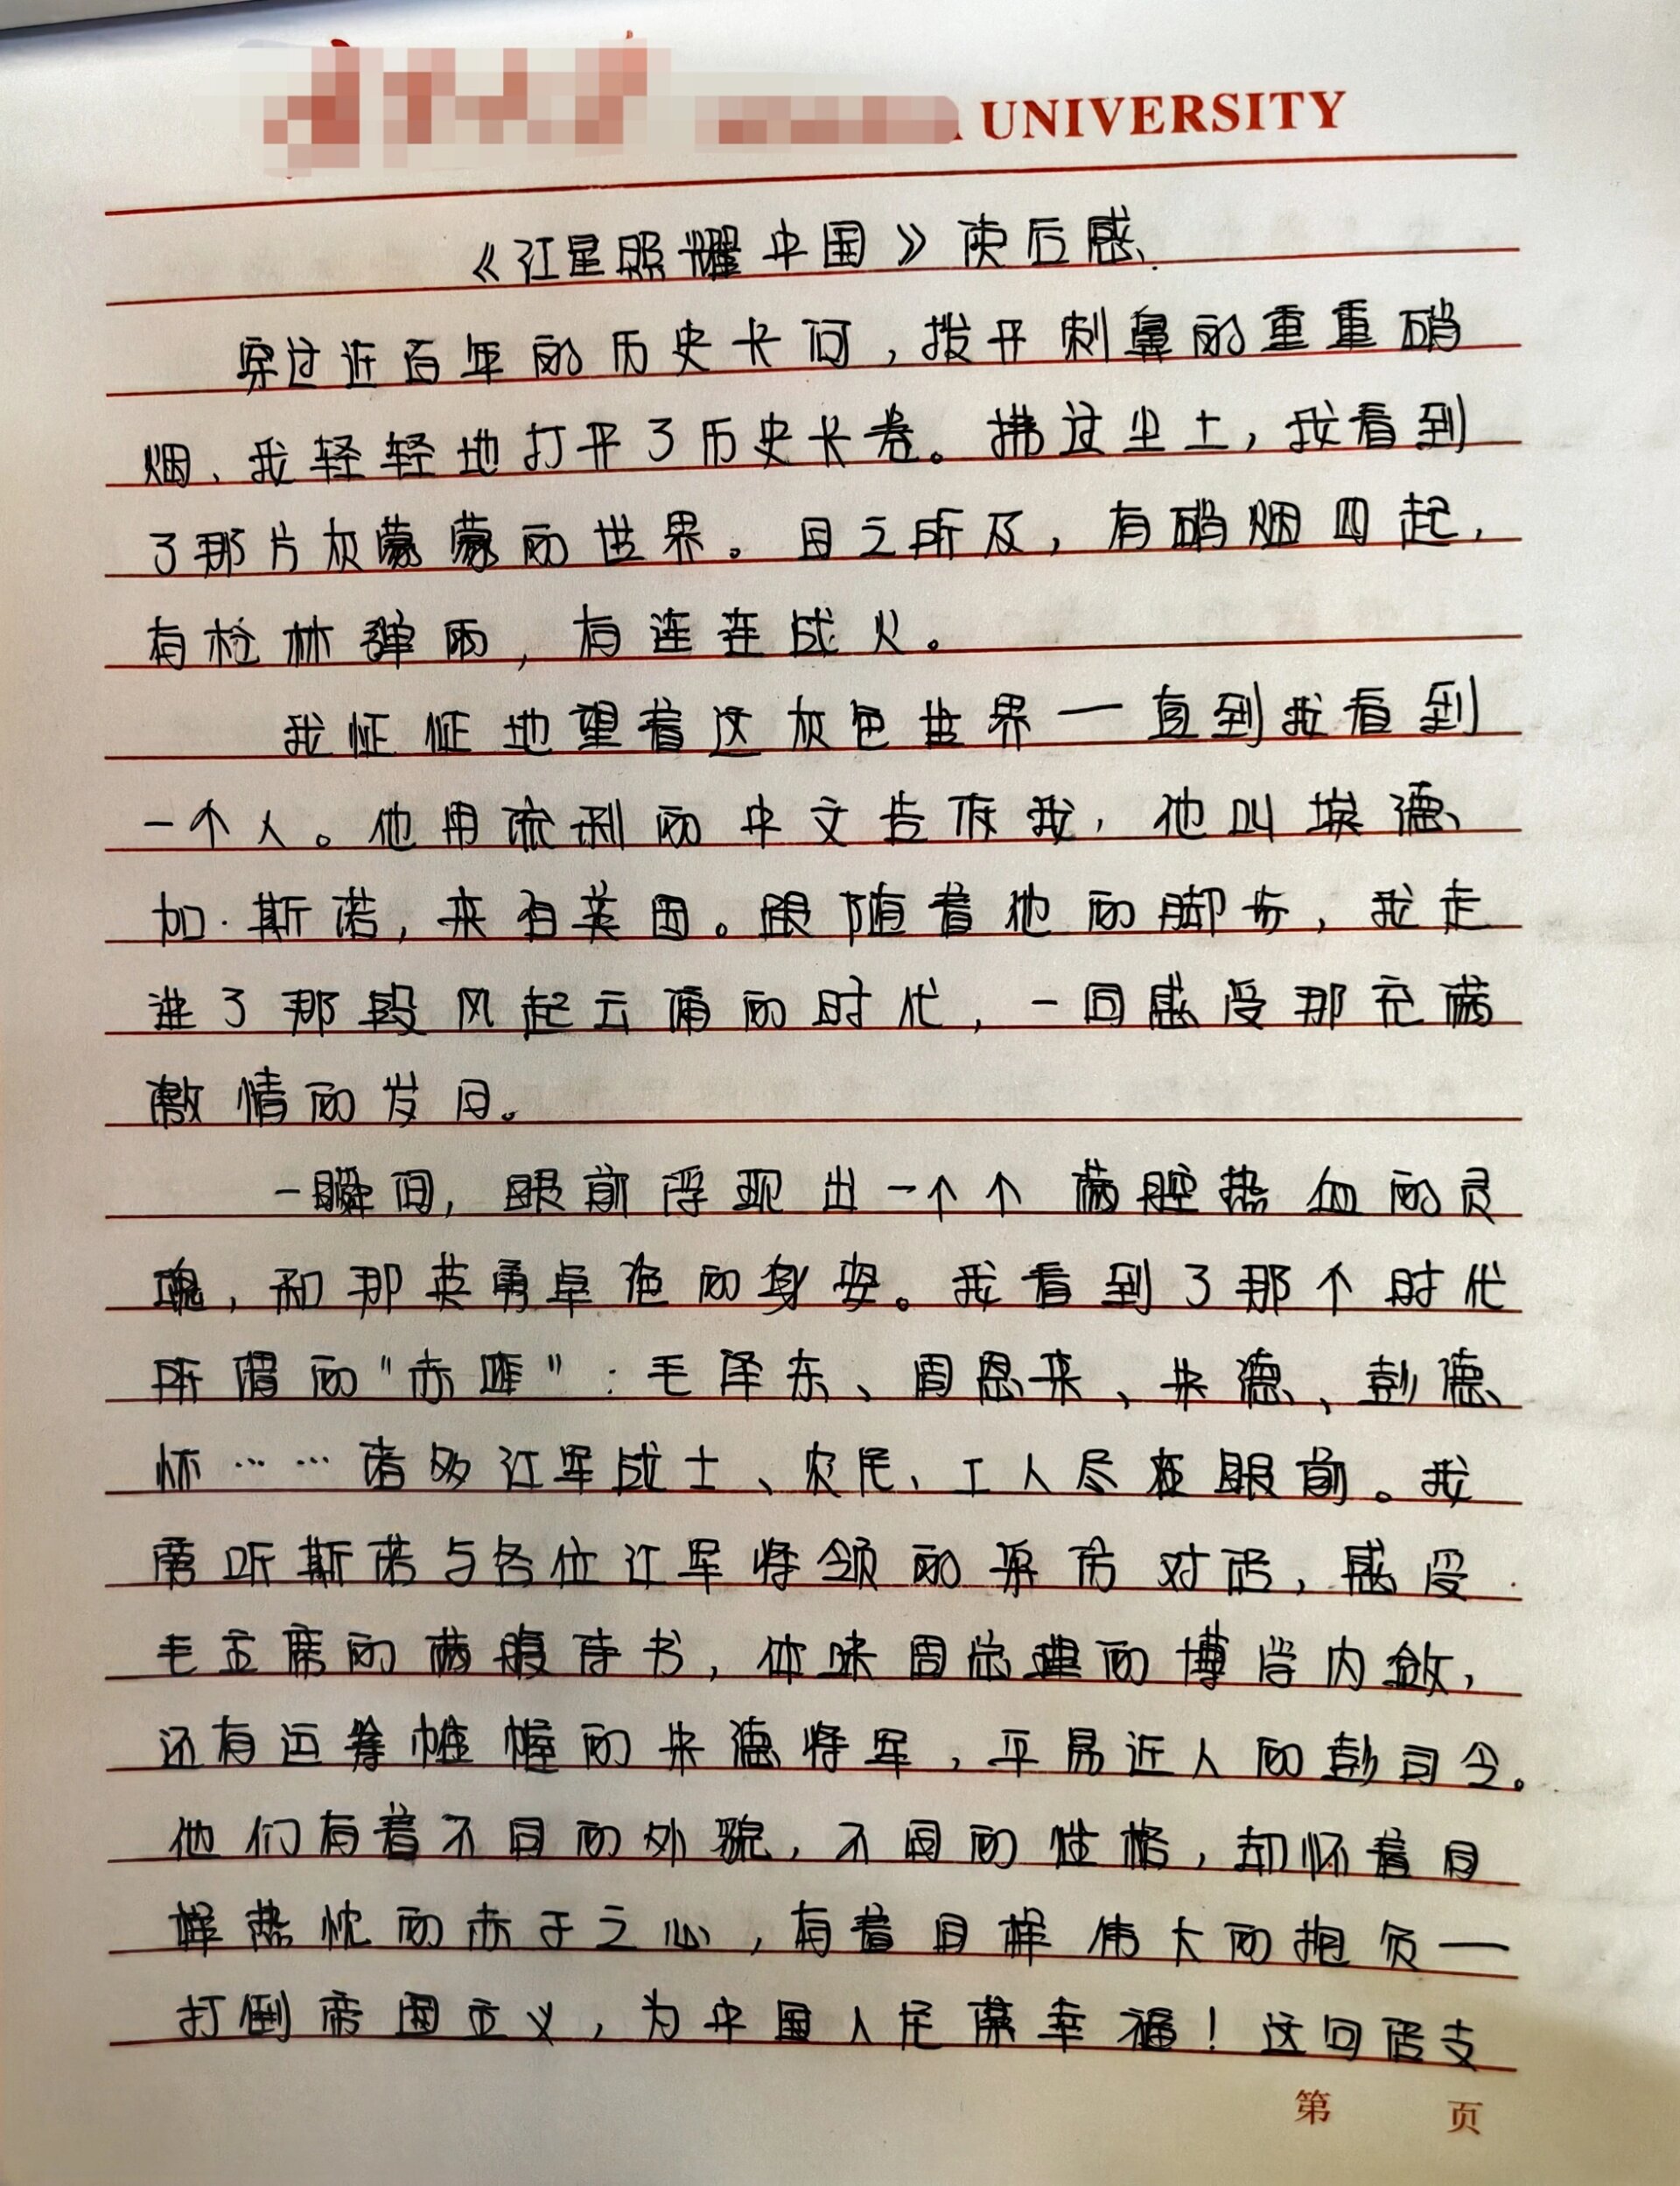 UNIVERSITY
《红星照耀中国》读后感
穿过近百年的历史长河，拨开刺鼻的重重硝
烟、我轻轻地打开了历史长卷。拂过尘土，我看到
了那片灰蒙蒙的世界。目之所及，有硝烟四起，
有枪林弹雨，有连连战火。
我怔怔地望着这灰色世界一直到我看到
一个人。他用流利的中文告诉我，他叫埃德
加·斯诺，来自美国。跟随着他的脚步，我走
进了那段风起云涌的时代，一同感受那充满
激情的岁月。
一瞬间，眼前浮现出一个个满腔热血的灵
魂，和那英勇卓绝的身姿。我看到了那个时代
所谓的"赤匪"：毛泽东、周恩来、朱德、彭德
怀……诸多红军战士、农民、工人尽在眼前。我
旁听斯诺与各位红军将领的采访对话，感受
毛主席的满腹诗书，体味周总理的博学内敛，
还有运筹帷幄的朱德将军，平易近人的彭司令。
他们有着不同的外貌，不同的性格，却怀着同
样热忱的赤子之心，有着同样伟大的抱负一
打倒帝国主义，为中国人民谋幸福！这回话支
第 页